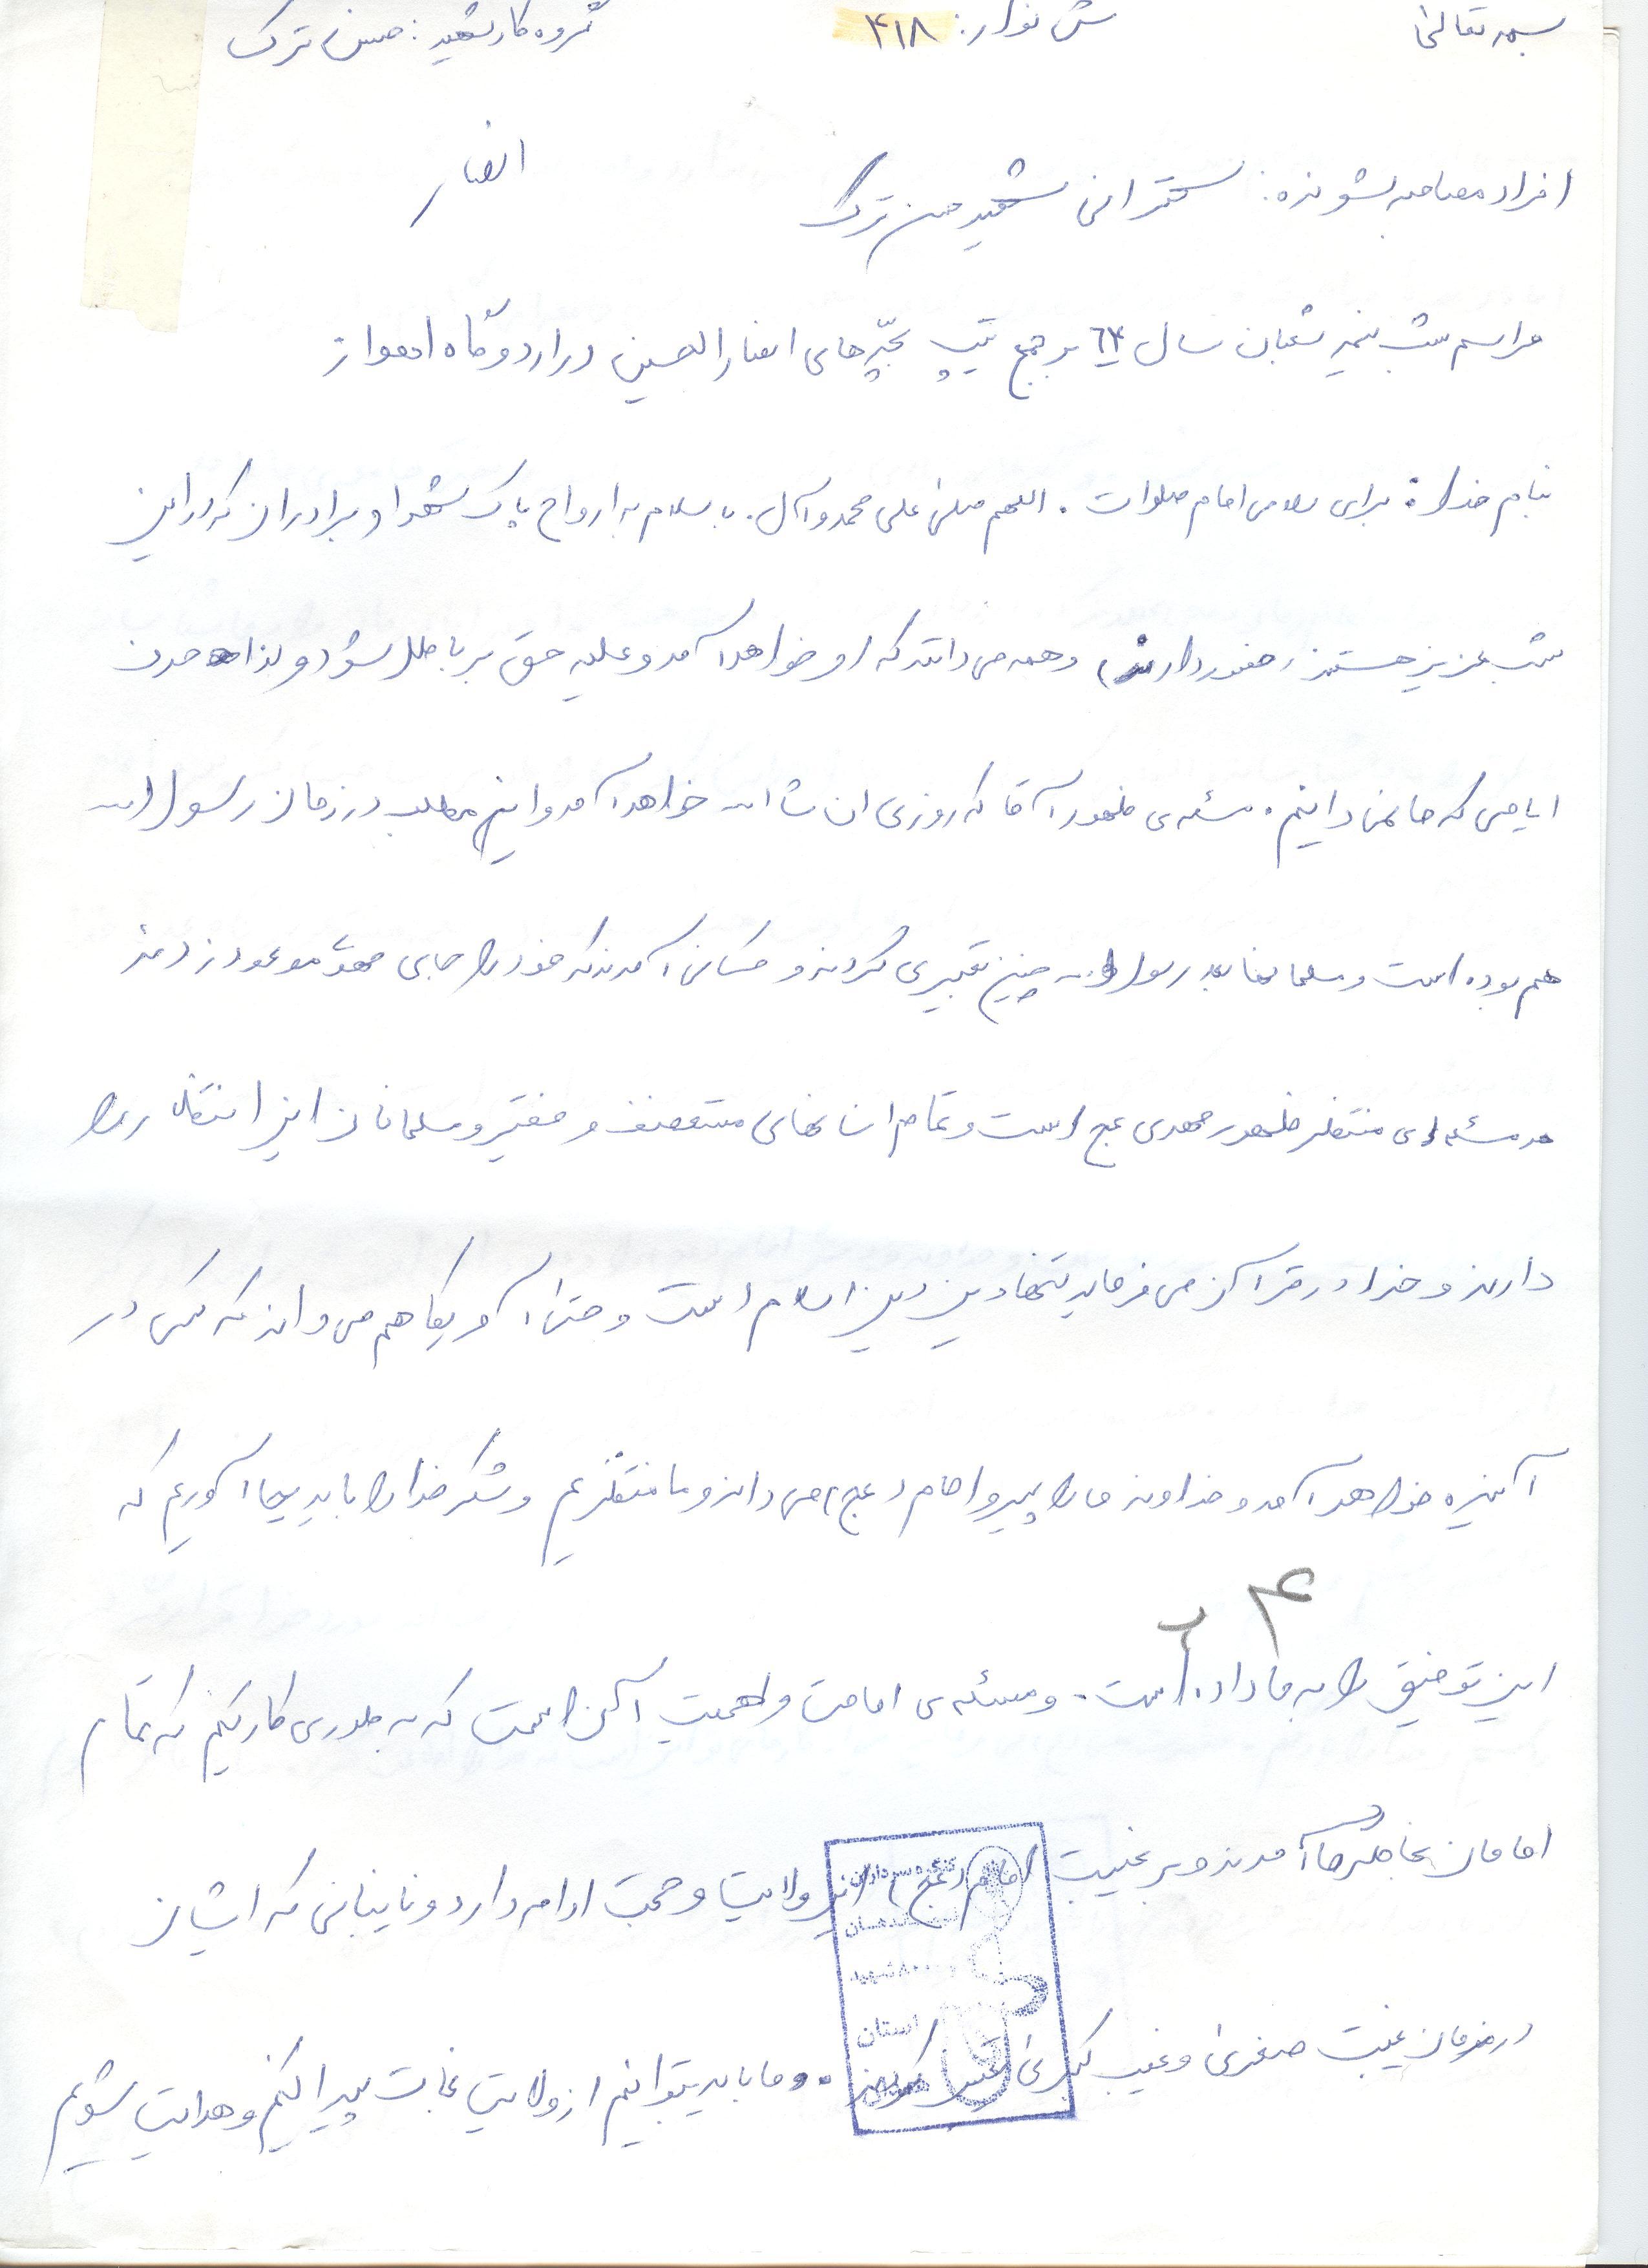 بسمه تعالی ش نوار: ۴۱۸ گروه کار شهید: حسن ترک
افراد مصاحبه شونده: سخنرانی شهید حسن ترک انصار
مراسم شب نیمه شعبان سال ۶۴ در جمع تیپ بچّه‌های انصارالحسین در اردوگاه اهواز
بنام خدا: برای سلامی امام صلوات. اللهم صلی علی محمد و آل. با سلام به ارواح پاک شهدا و برادران که در این
شب عزیز هستند (حضور دارند) و همه می دانند که او خواهد آمد و غلبه حق بر باطل شود و لذا
که ما نمی دانیم. مسئه‌ی ظهور آقا که روزی ان شاء اله خواهد آمد و این مطلب در زمان رسول اله
هم بوده است و مسلمانها بعد رسول اله چنین تعبیری کردند و کسانی آمدند که خود را جای مهدی موعود زدند
مسئه‌ای منتظر ظهور مهدی عج است و تمام انسانهای مستضعف و فقیر و مسلمانان این انتظار را
دارند و خدا در قرآن می فرماید تنها دین دین اسلام است و حتی آمریکا هم می داند که کسی در
آینده خواهد آمد و خداوند ما را پیرو امام (عج) می داند و ما منتظریم و شکر خدا را باید بجا آوریم که
این توفیق را به ما داده است. و مسئله‌ی امامت و اهمیت آن است که به طوری کار کنیم که تمام
امامان بخاطر ما آمدند و بر غیبت امام (عج) این ولایت و حجت ادامه دارد و نایبانی که ایشان
در زمان غیبت صغری و غیب کبری تعیین کردند. و ما باید بتوانیم از ولایت نجات پیدا کنیم و هدایت شویم
۴
ب
کنگره سرداران
شهید
استان